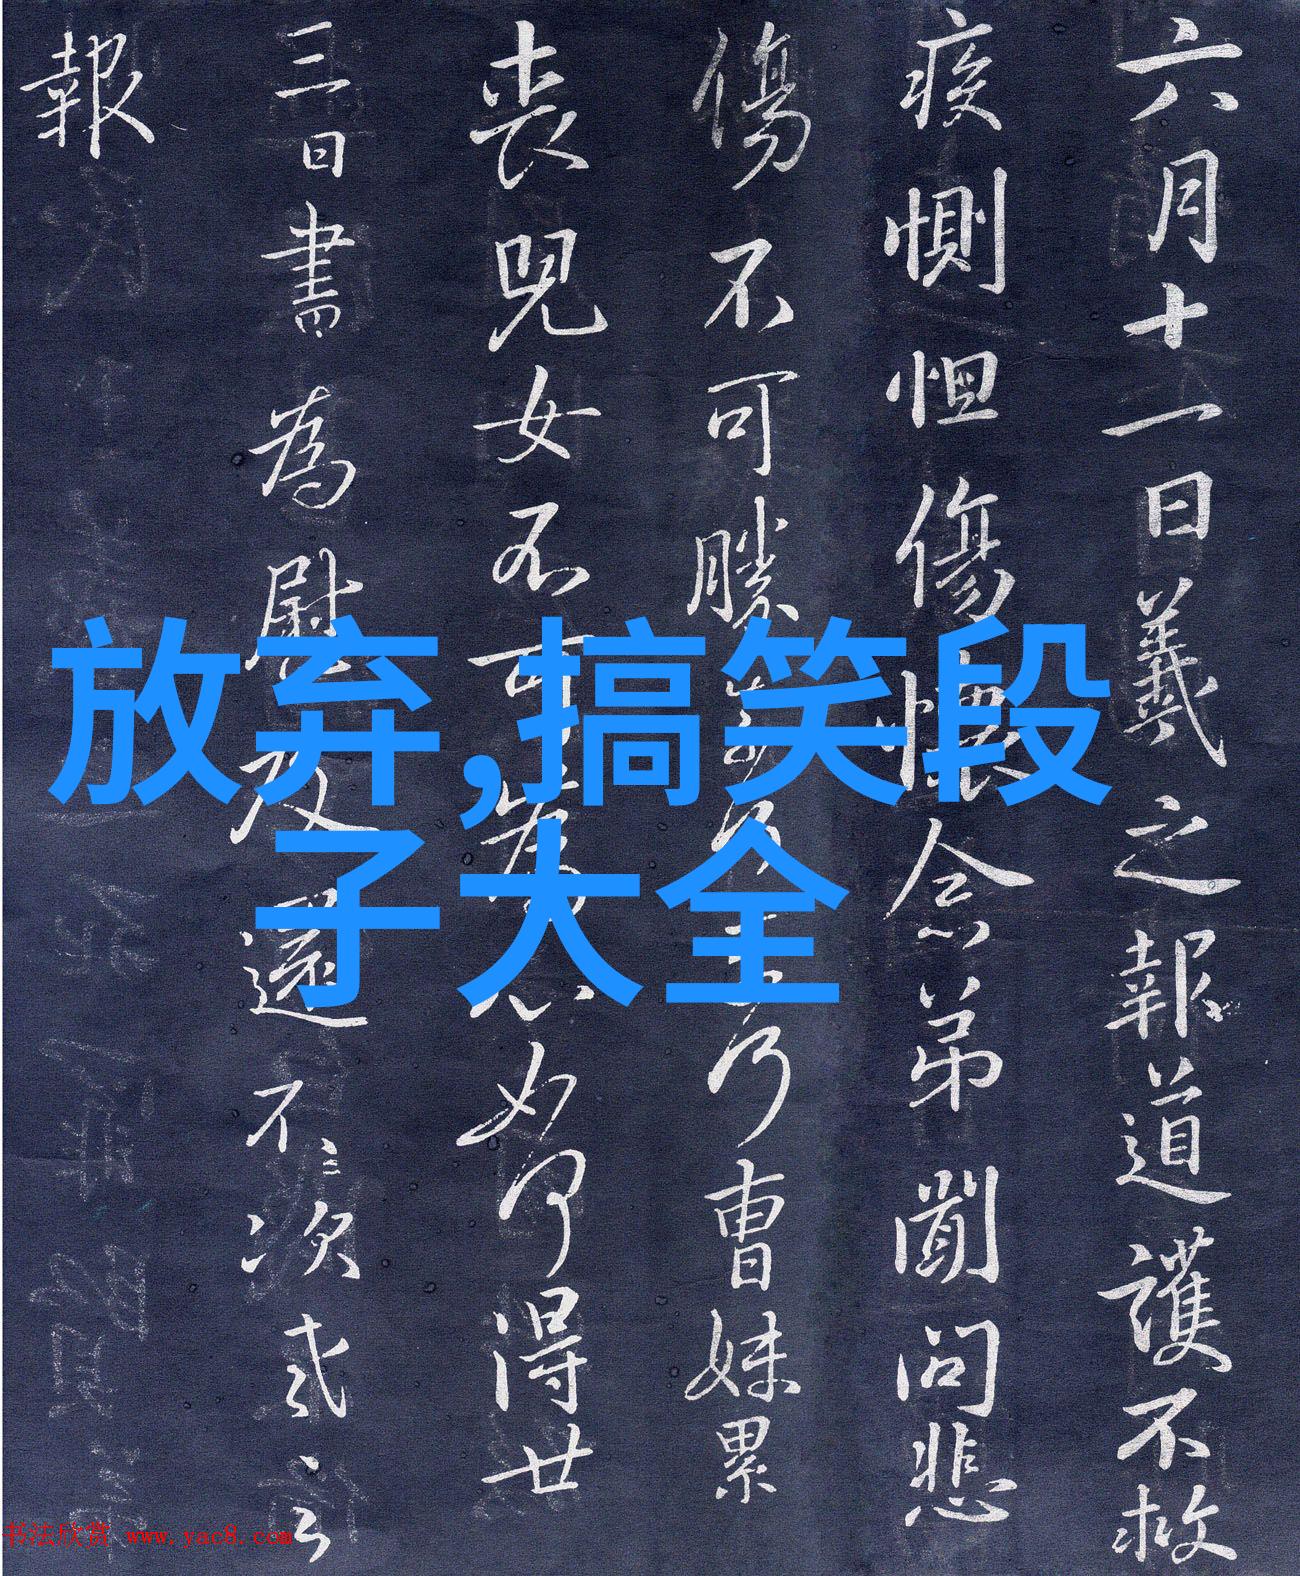 六月十一日羲之報道護不救
疾惻怛傷懷念弟聞問悲
傷不可勝乃曹妹累
喪兒女不可為心如何得廿
三日書為慰及還不次
報
放弃,搞笑段
子大全
书法欣赏 www.yac8.com